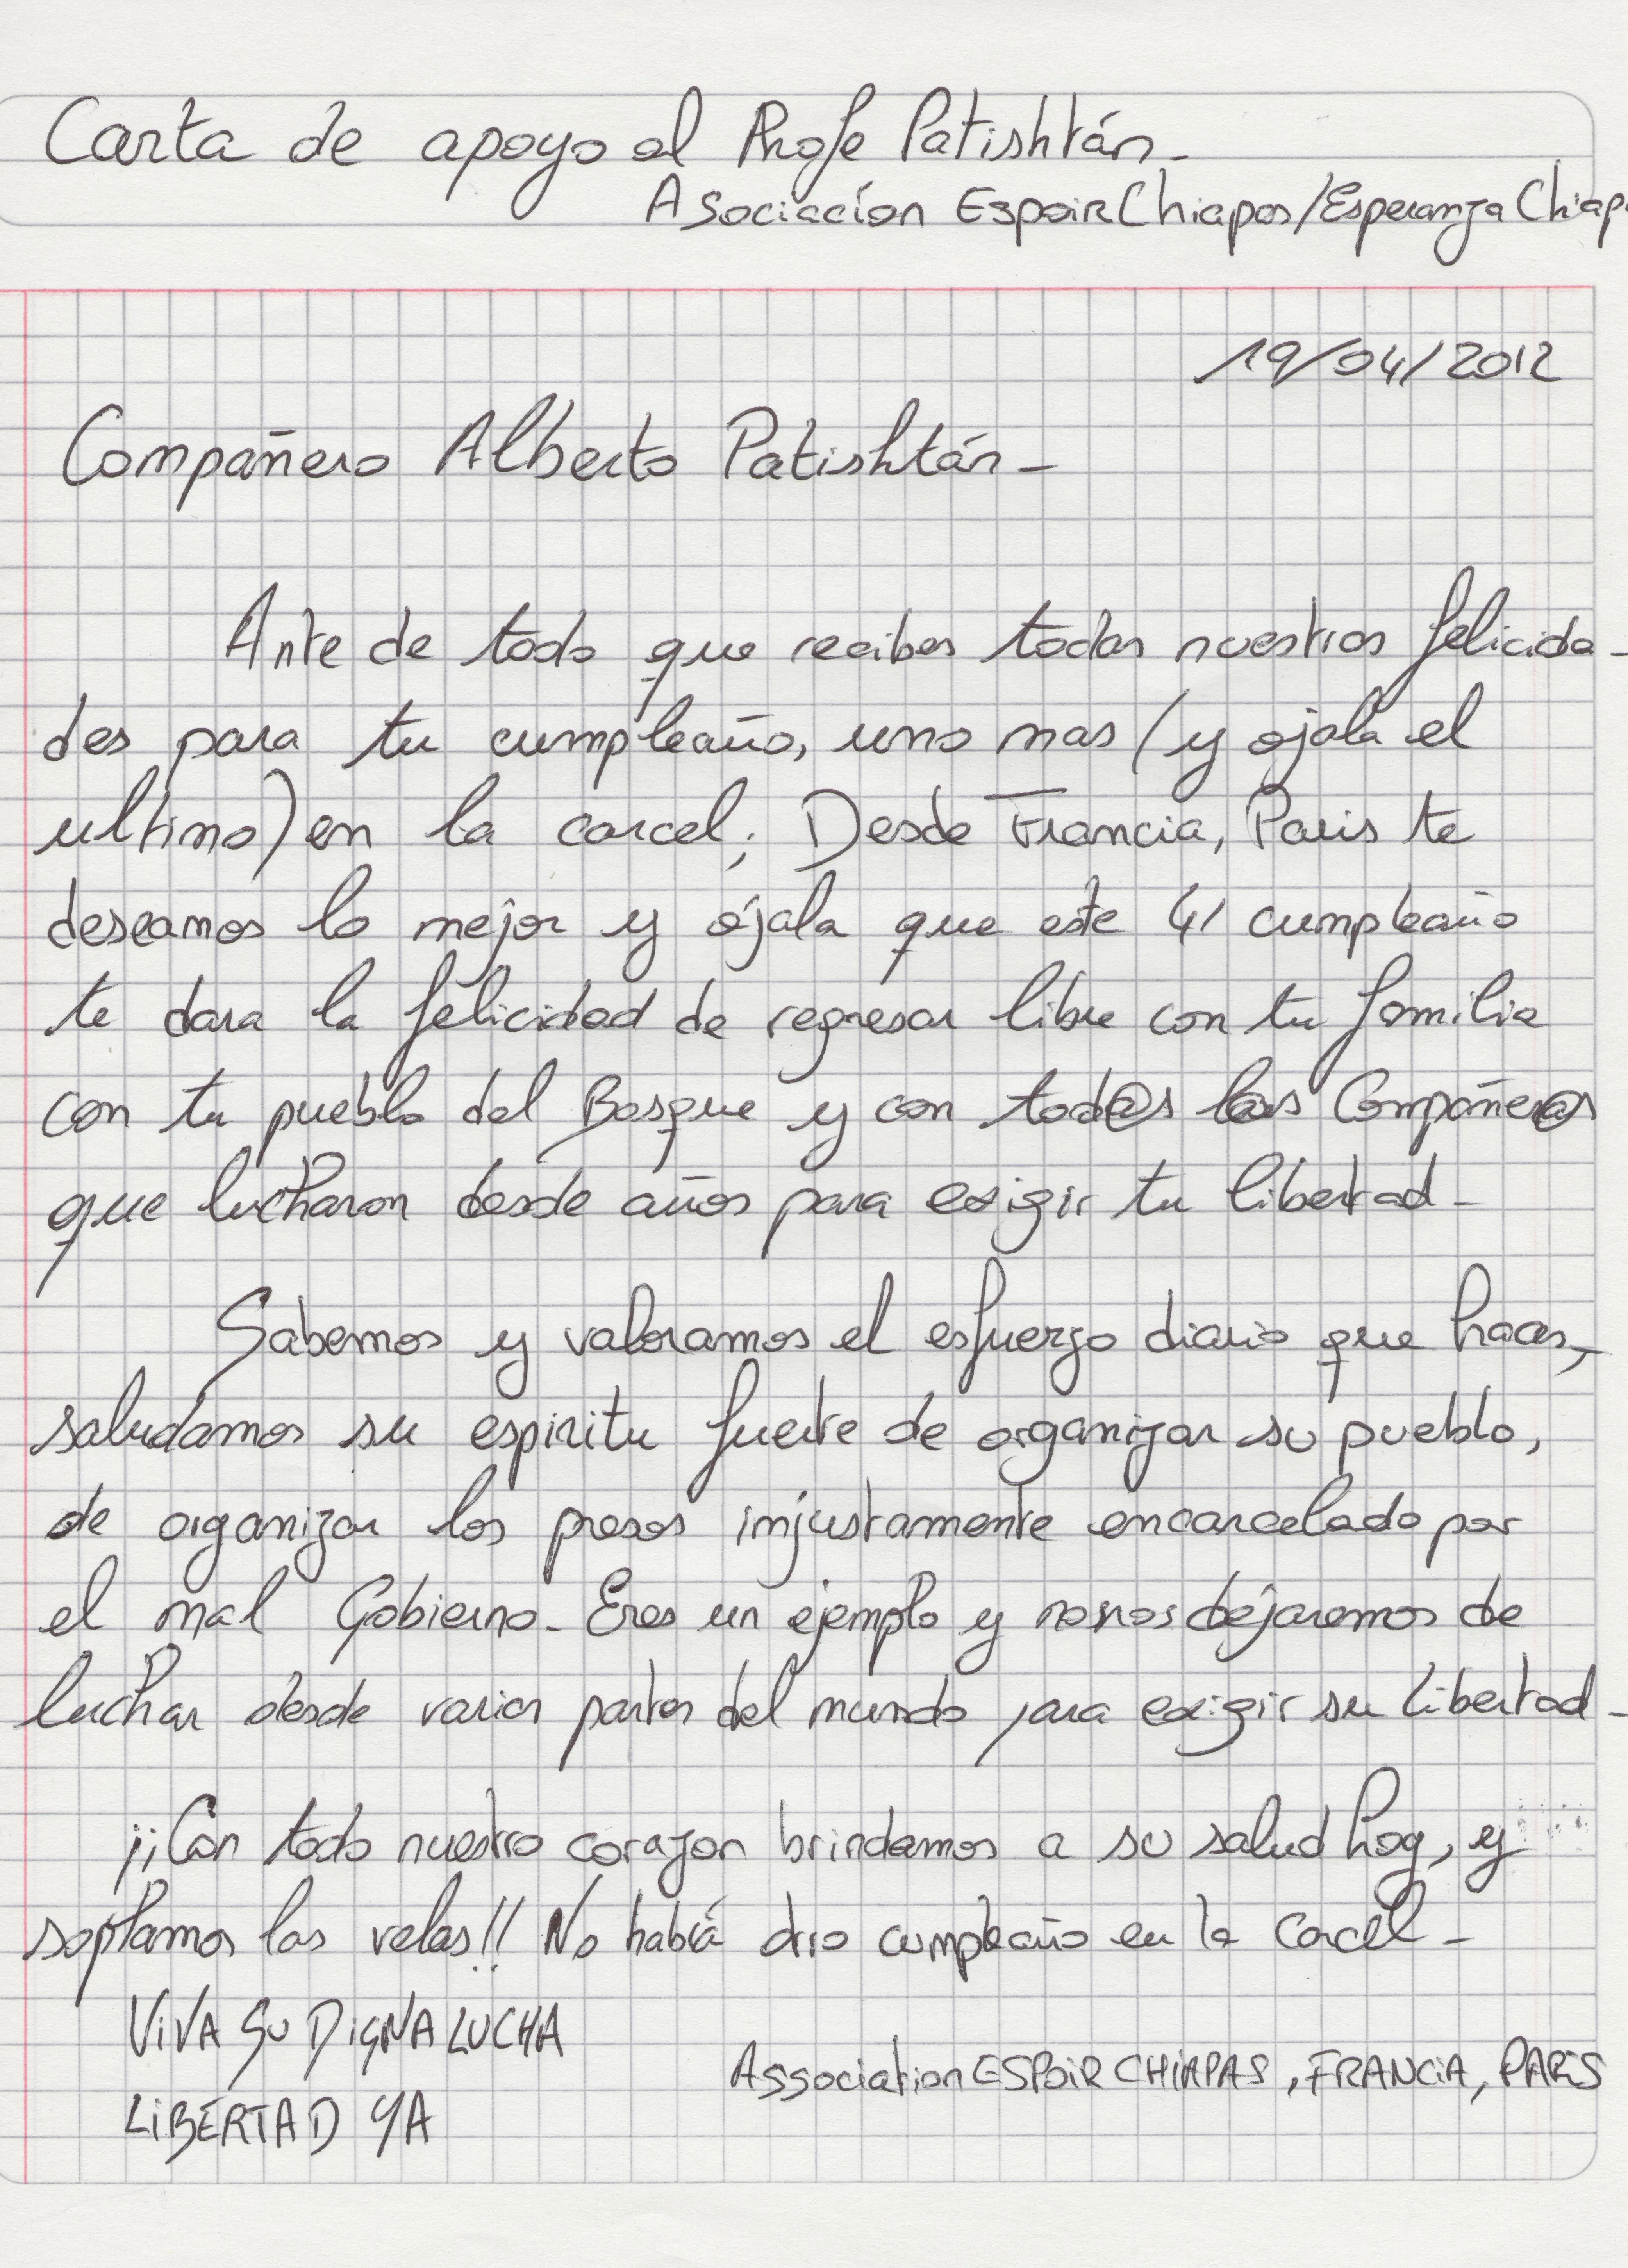 Carta de apoyo al Profe Patishtán_
Asociación Espoir Chiapas/Esperanza Chiap
19/04/2012
Compañero Alberto Patishtán_
Ante de todo que recibes todas nuestras felicida_
des para tu cumpleaño, uno mas (y ojala el
ultimo) en la carcel; Desde Francia, Paris te
deseamos lo mejor y ójala que este 41 cumpleaño
te dara la felicidad de regresar libre con tu familia
con tu pueblo del Bosque y con tod@s l@s Compañer@s
que lucharon desde años para exigir tu libertad_
Sabemos y valoramos el esfuerzo diario que haces,
saludamos su espiritu fuerte de organizar su pueblo,
de organizar los presos injustamente encarcelado por
el mal Gobierno_ Eres un ejemplo y no nos dejaremos de
luchar desde varias partes del mundo para exigir su libertad_
¡¡Con todo nuestro corazon brindamos a su salud hoy, y
soplamos las velas!! No habrá otro cumpleaño en la carcel_
VIVA SU DIGNA LUCHA
LIBERTAD YA
Association ESPOIR CHIAPAS, FRANCIA, PARIS